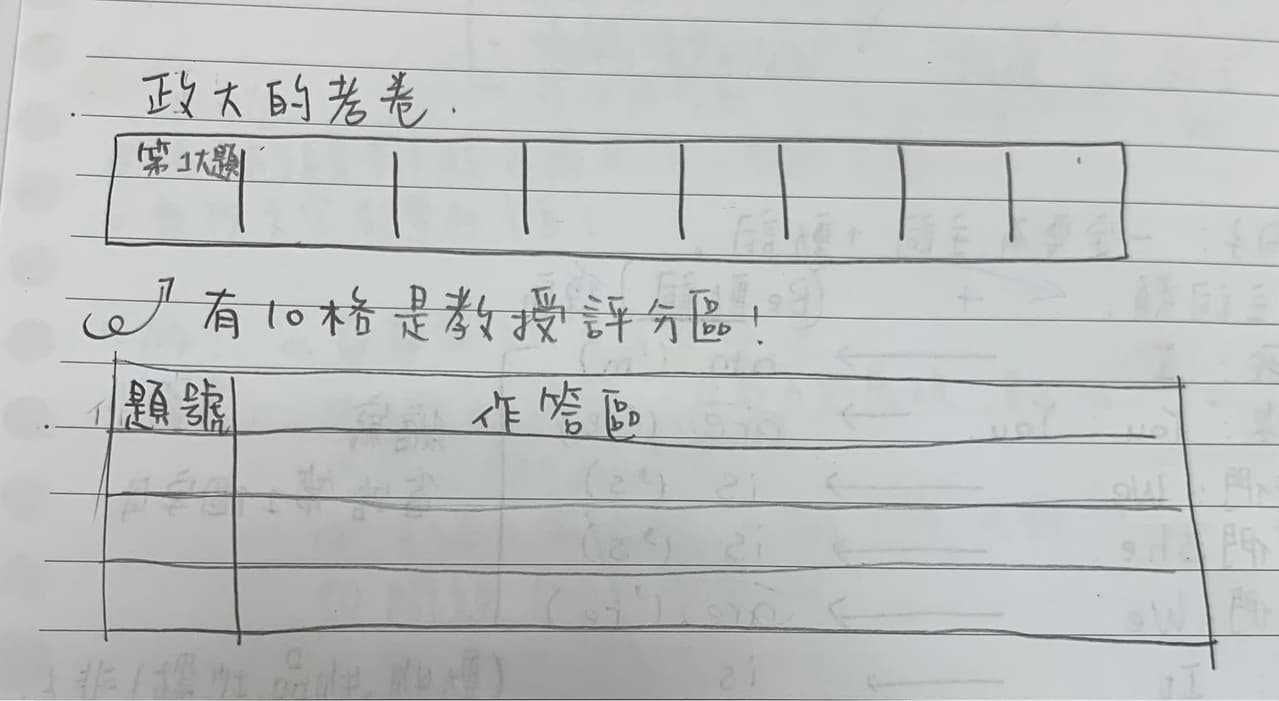 政大的考卷.
第1大題
有10格是教授評分區!
題號 作答區